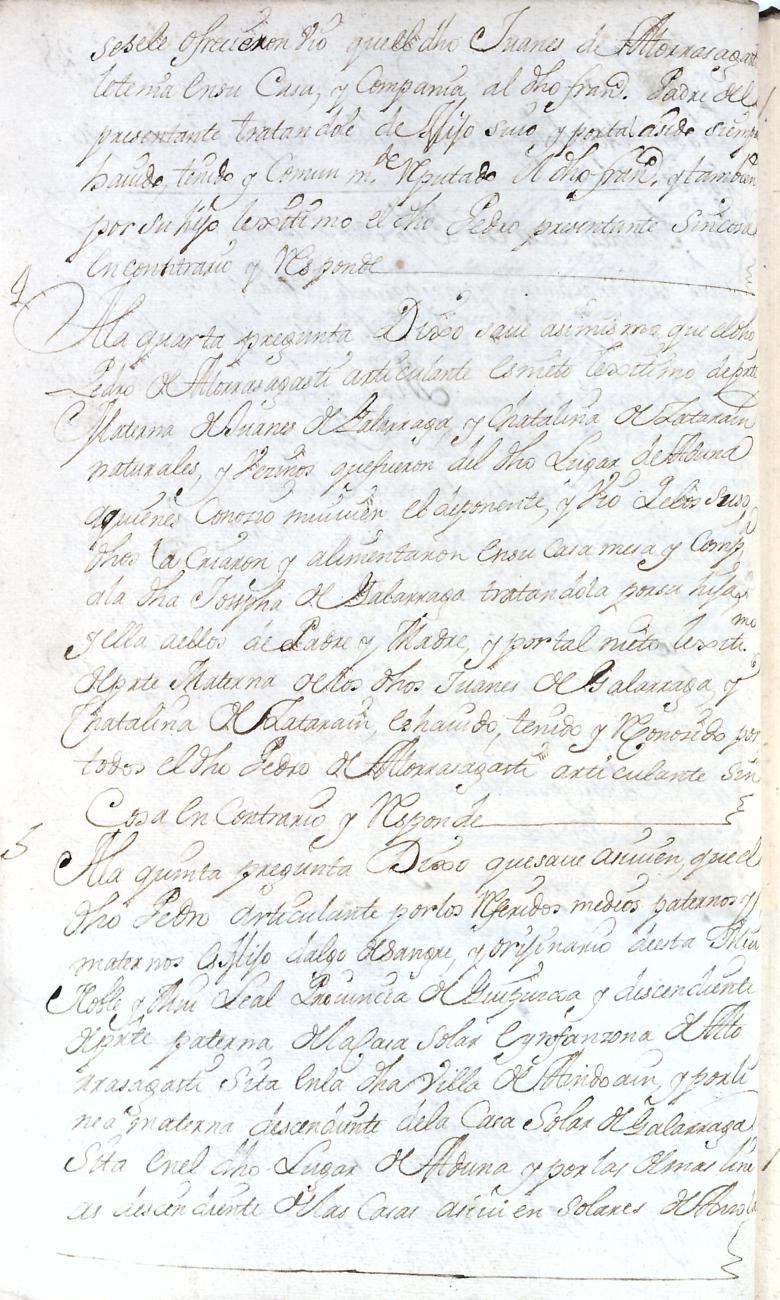 sesele ofrecieron vio quel dho Juanes de Alorrasagasti
lotenia ensu Casa, y Compania al dho franco. Padre del
presentante tratandole de Hijo suio, y portal asido siempre
hauido, tenido y Comun mte. Reputado el dho franco, y tambien
por su hijo lexitimo el dho Pedro presentante sin cosa
en contrario y Responde
4
Ala quarta pregunta Dixo saue asimismo que el dho
Pedro de Alorrasagasti articulante es nieto lexitimo de parte
Materna de Juanes de Galarraga, y Chatalina de Zatarain
naturales, y Vezinos que fueron del dho Lugar de Aduna
aquienes Conozio mui vien el deponente, y vio Qelos suso
dhos la Criaron y alimentaron ensu Casa mesa y Comp.a
ala dha Josepha de Galarraga tratandola por su hija
y ella aellos de Padre y Madre, y por tal nieto lexiti mo
de prte Materna de los dhos Juanes de Galarraga, y
Chatalina de Zatarain, es hauido, tenido y Reconosido por
todos el dho Pedro de Alorrasagasti articulante sin
Cosa en Contrario y Responde
5
Ala quinta pregunta Dixo que saue asivien, que el
dho Pedro articulante por los Referidos medios paternos y
maternos es Hijo dalgo de Sangre, y orijinario de esta Mui
Noble y Mui Leal Provincia de Guipuzcoa y descendiente
de prte paterna de la Casa Solar e ynfanzona de Alo
rrasagasti sita en la dha Villa de Andoain, y por li
nea materna descendiente de la Casa Solar de Galarraga
Sita en el dho Lugar de Aduna y por las demas line
as descendiente de las Casas asivien Solares de